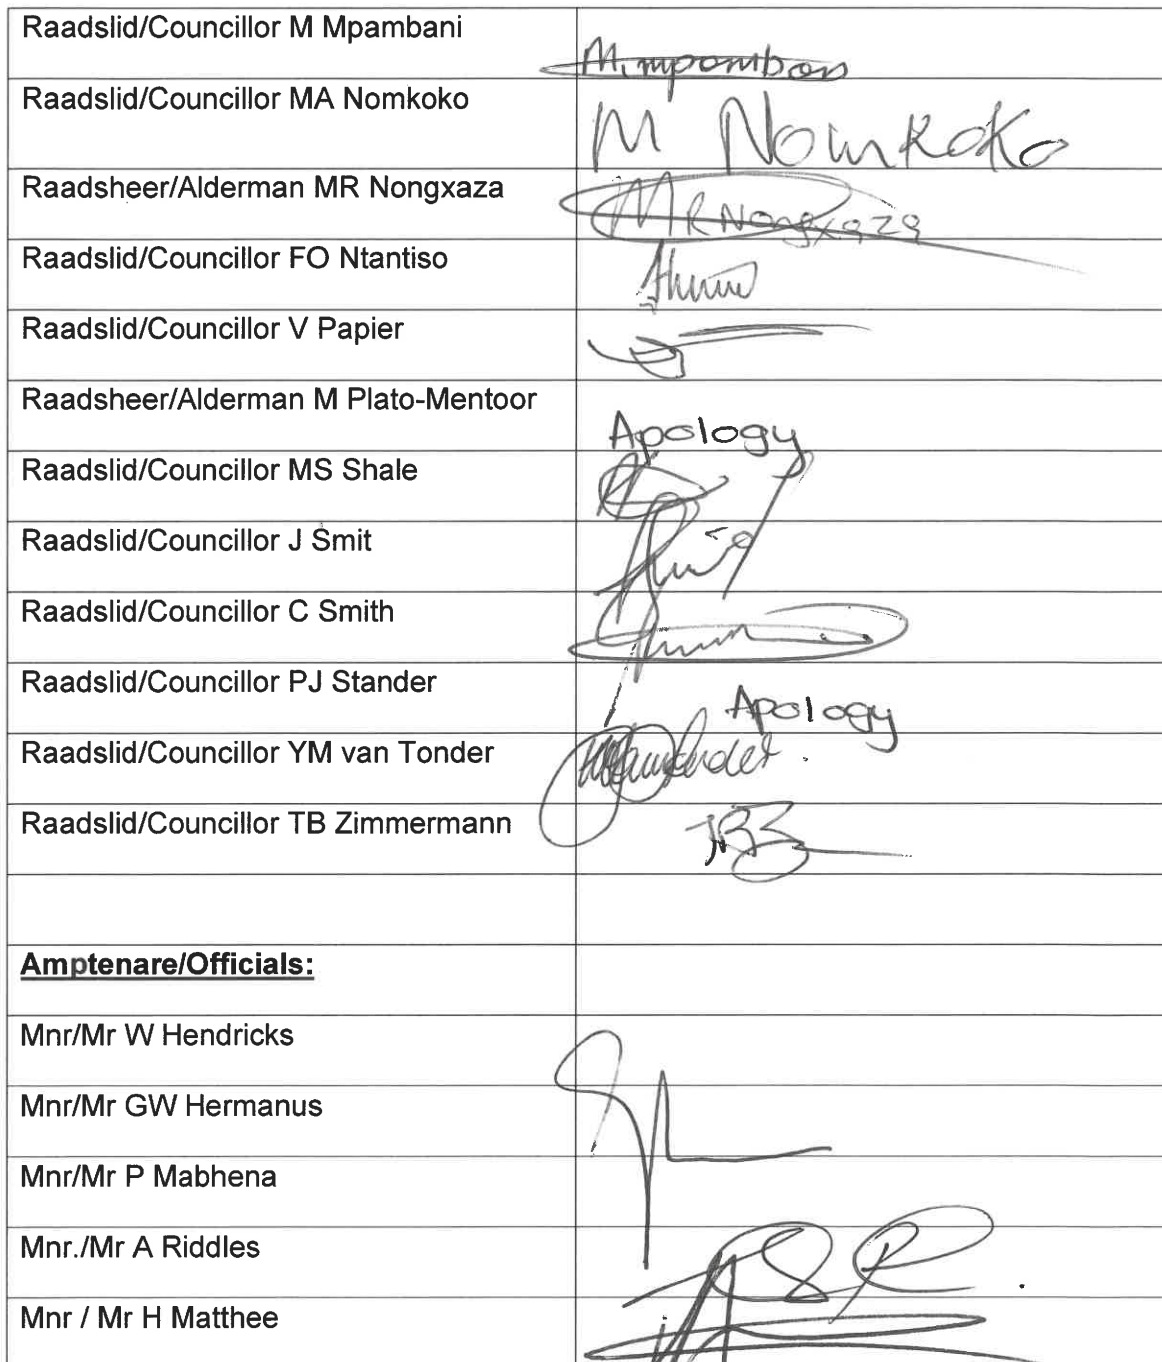 Raadslid/Councillor M Mpambani
M. mpamban
Raadslid/Councillor MA Nomkoko
M Nomkoko
Raadsheer/Alderman MR Nongxaza
MR Nongxaza
Raadslid/Councillor FO Ntantiso
Raadslid/Councillor V Papier
Raadsheer/Alderman M Plato-Mentoor
Apology
Raadslid/Councillor MS Shale
Raadslid/Councillor J Smit
Raadslid/Councillor C Smith
Raadslid/Councillor PJ Stander
Apology
Raadslid/Councillor YM van Tonder
Raadslid/Councillor TB Zimmermann
Amptenare/Officials:
Mnr/Mr W Hendricks
Mnr/Mr GW Hermanus
Mnr/Mr P Mabhena
Mnr./Mr A Riddles
Mnr / Mr H Matthee